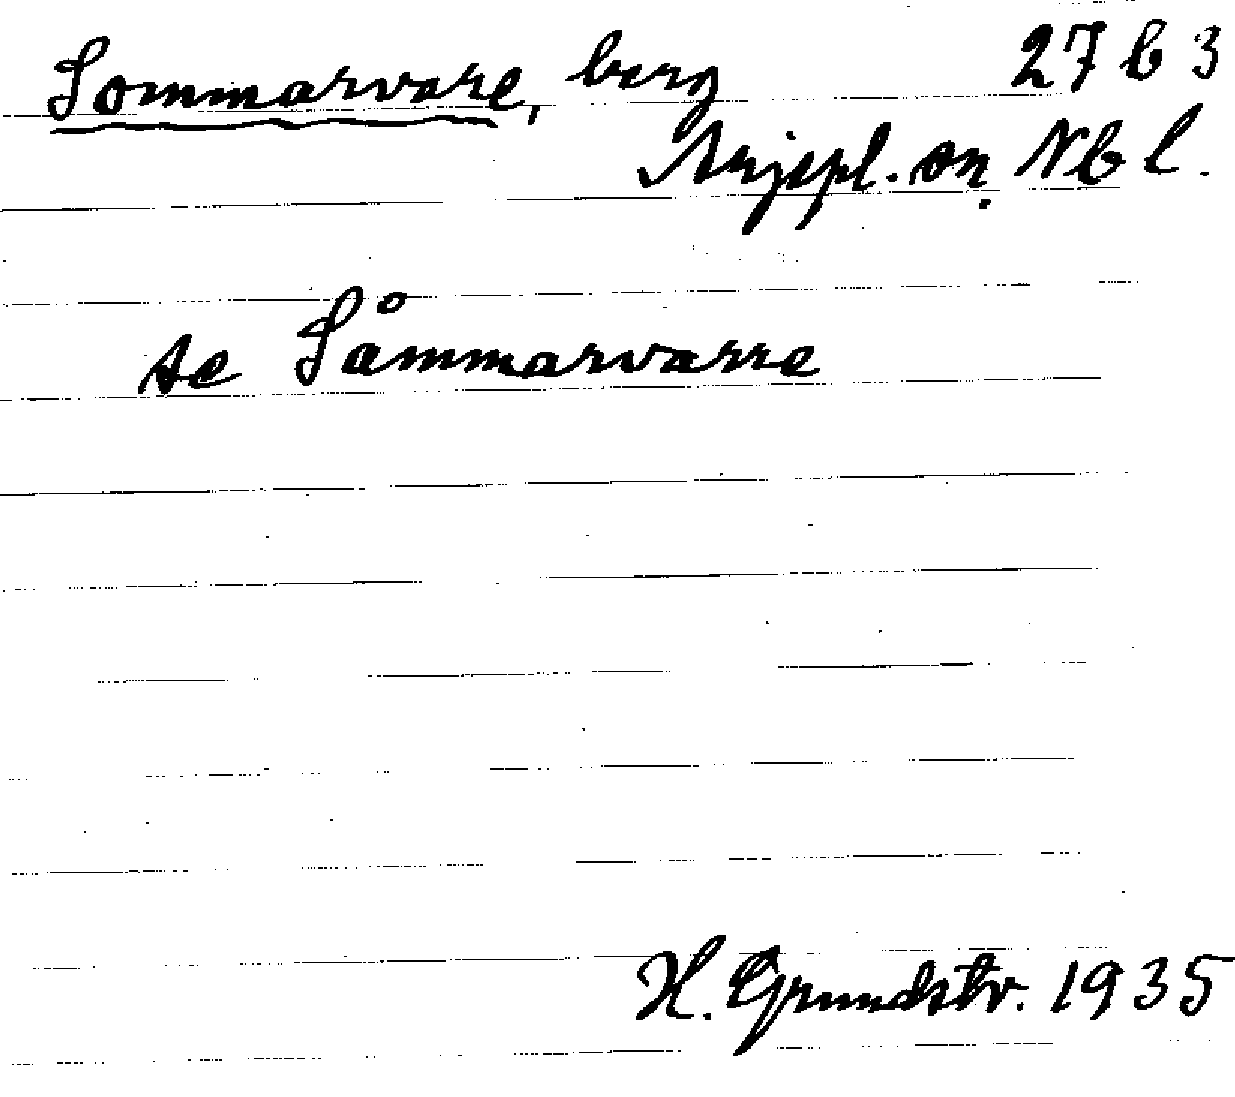 Sommarvare, berg 27 b 3
Arjepl. sn. Nb l.
se Såmmarvarre
H. Grundstr. 1935